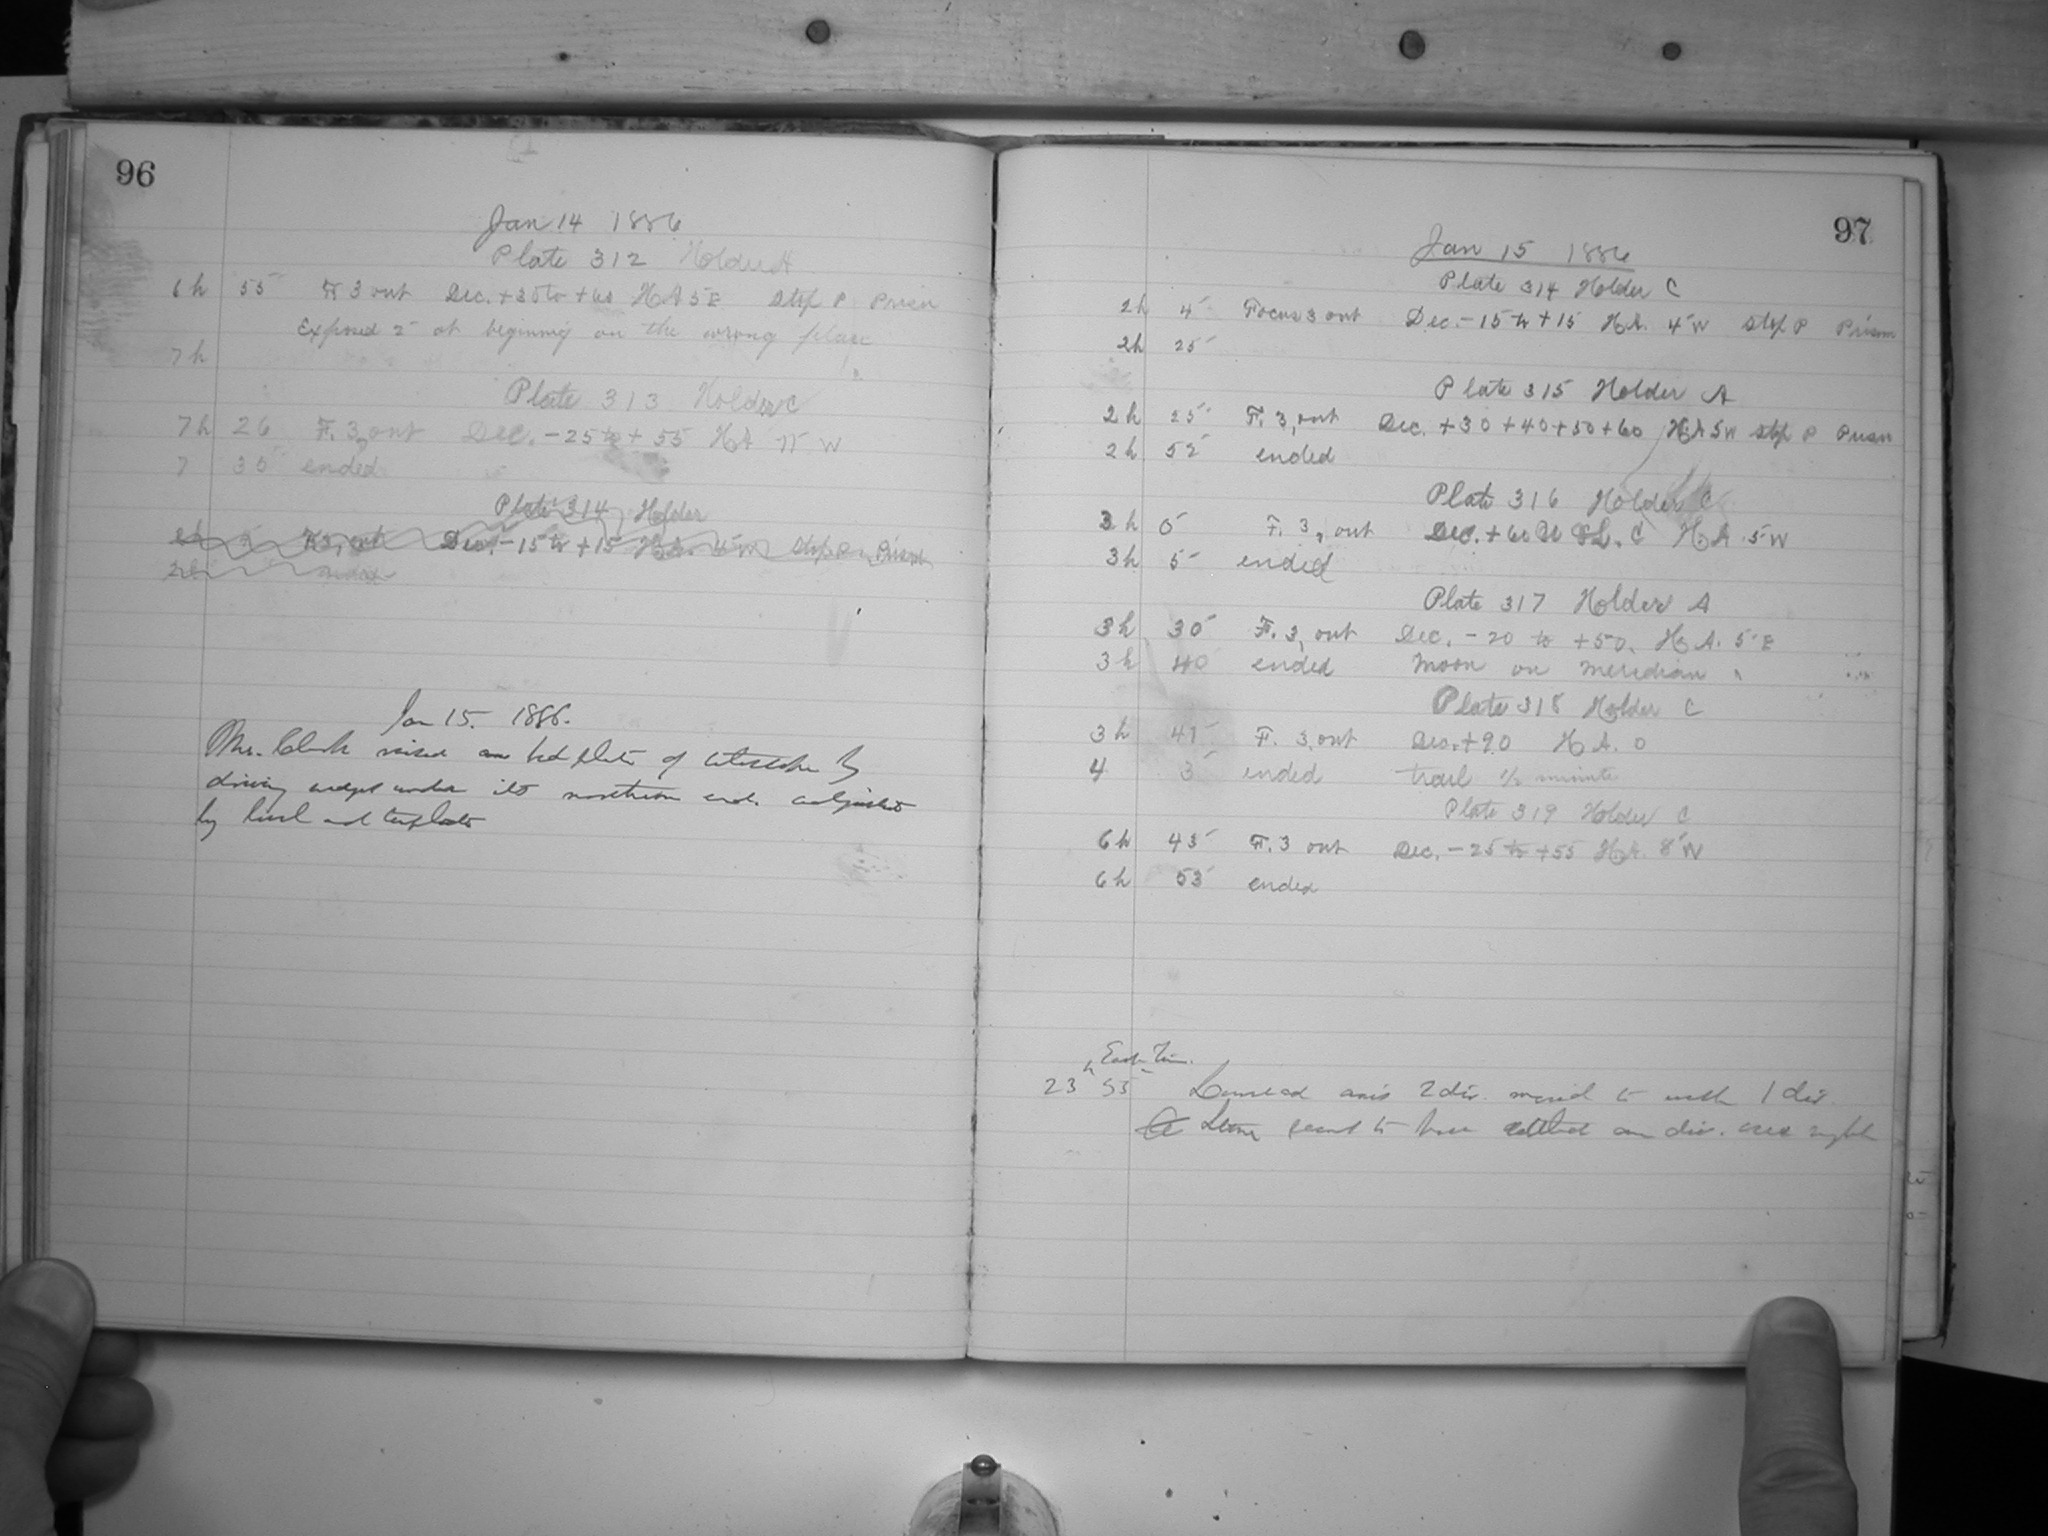 96
Jan 14 1886
Plate 312 Holder A
6h 55 F. 3 out Dec. +30 to +60 HA 5E Stop P Prism
Exposed 2 at beginning on the wrong place
7h
Plate 313 Holder C
7h 26 F. 3, out Dec. -25 to +55 HA W
7 30 ended
Plate 314 Holder
2h 5 F. 3, out Dec. -15 to +15 H.A. 4 W Stop P Prism
2h
Jan 15. 1886.
Mr. Clark raised bed plate of by
driving wedges under its northern end. adjusted
by level and
97
Jan 15 1886
Plate 314 Holder C
2h 5 Focus 3 out Dec. -15 to +15 H.A. 4 W Stop P Prism
2h 25
Plate 315 Holder A
2h 25 F. 3, out Dec. +30 +40 +50 +60 H.A 5W Stop P Prism
2h 52 ended
Plate 316 Holder C
3h 0 F. 3, out Dec. +60 U & L. C H.A. 5 W
3h 5 ended
Plate 317 Holder A
3h 30 F. 3, out Dec. -20 to +50. H.A. 5 E
3h 40 ended Moon on meridian
Plate 318 Holder C
3h F. 3, out Dec. +90 H.A. 0
4 3 ended trail 1/2 minute
Plate 319 Holder C
6h 43 F. 3 out Dec. -25 to +55 H.A. 8 W
6h 53 ended
East. Tim.
23 h 55 Lowered axis 2 div. 1 div.
to have div.